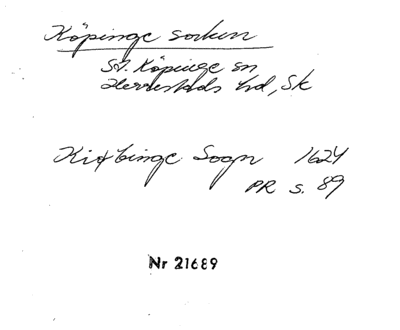 Köpinge socken
St. Köpinge sn
Herrestads hd, Sk
Kiøbinge Sogn 1624
PR s. 89
Nr 21689